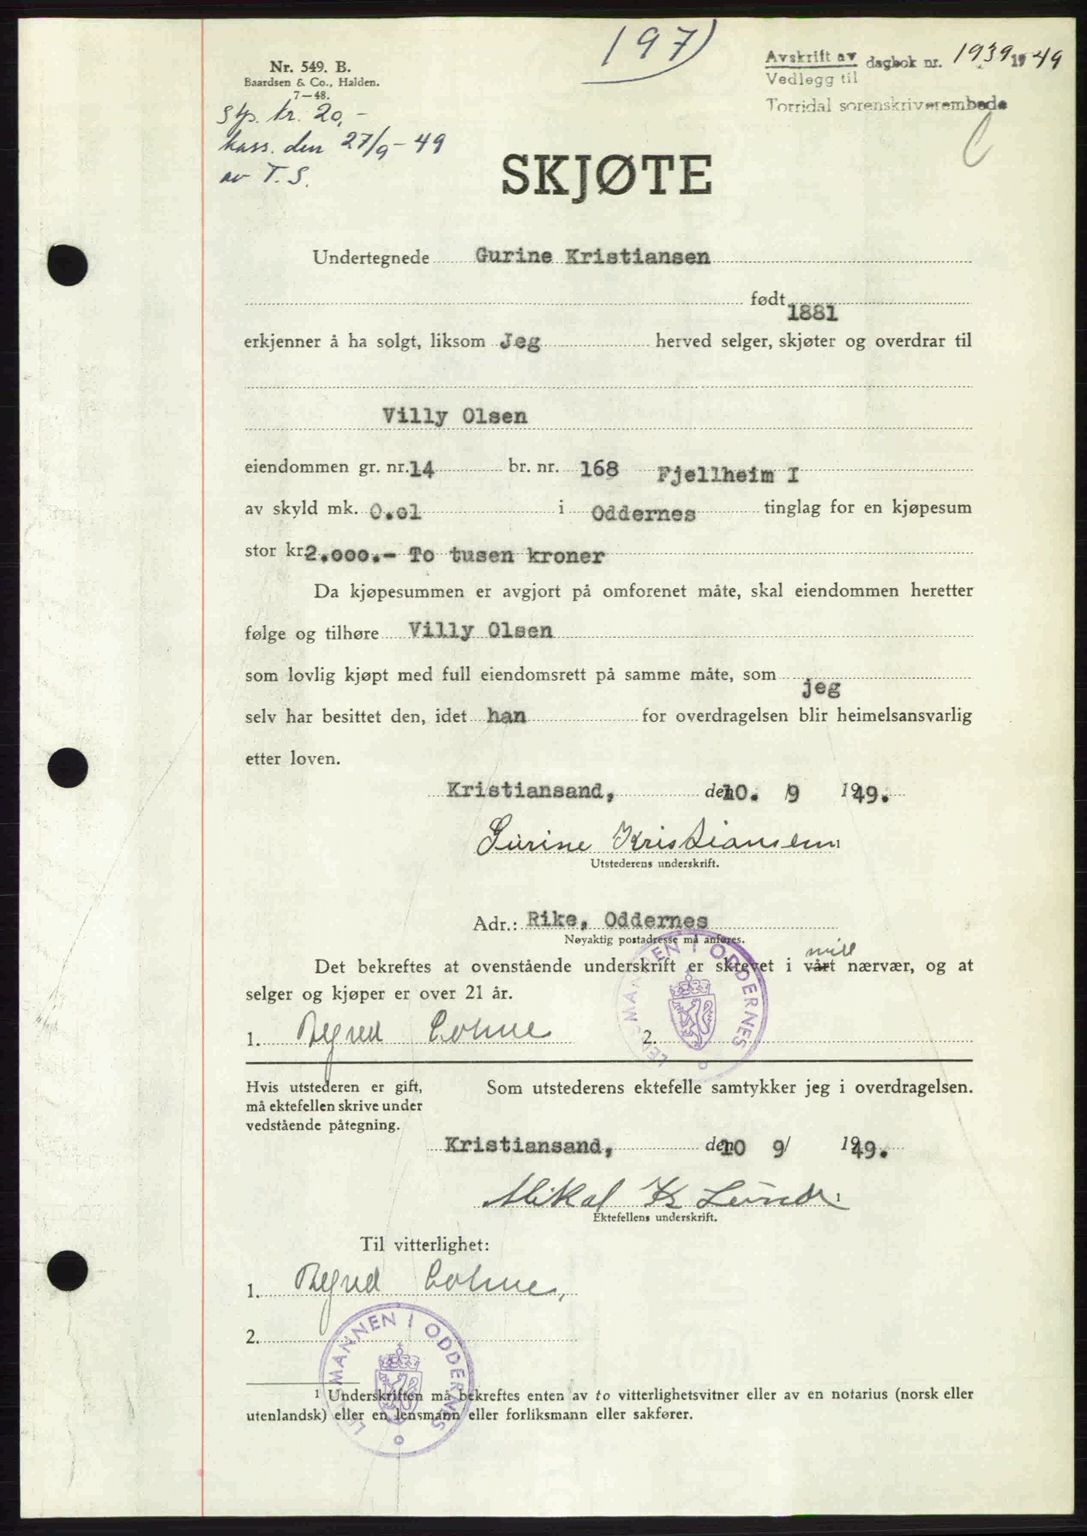 197)
Nr. 549. B.
Baardsen & Co., Halden.
7-48.
Avskrift av dagbok nr. 1939 1949
Vedlegg til
Torridal sorenskriverembede
Stp. kr. 20,-
kass. den 27/9-49
av T.S.
SKJØTE
Undertegnede Gurine Kristiansen
født 1881
erkjenner å ha solgt, liksom Jeg herved selger, skjøter og overdrar til
Villy Olsen
eiendommen gr. nr. 14 br. nr. 168 Fjellheim I
av skyld mk. 0.01 i Oddernes tinglag for en kjøpesum
stor kr. 2.000.- To tusen kroner
Da kjøpesummen er avgjort på omforenet måte, skal eiendommen heretter
følge og tilhøre Villy Olsen
som lovlig kjøpt med full eiendomsrett på samme måte, som jeg
selv har besittet den, idet han for overdragelsen blir heimelsansvarlig
etter loven.
Kristiansand, den 10. / 9 1949.
Gurine Kristiansen 1
Utstederens underskrift.
Adr.: Rike, Oddernes
Nøyaktig postadresse må anføres.
mitt
Det bekreftes at ovenstående underskrift er skrevet i vårt nærvær, og at
selger og kjøper er over 21 år.
1. 2.
LENSMANNEN I ODDERNES
Hvis utstederen er gift,
må ektefellen skrive under
vedstående påtegning.
Som utstederens ektefelle samtykker jeg i overdragelsen.
Kristiansand, den 10 9/ 1949.
Mikal K 1
Ektefellens underskrift.
Til vitterlighet:
1.
2.
LENSMANNEN I ODDERNES
1 Underskriften må bekreftes enten av to vitterlighetsvitner eller av en notarius (norsk eller
utenlandsk) eller en lensmann eller forliksmann eller sakfører.